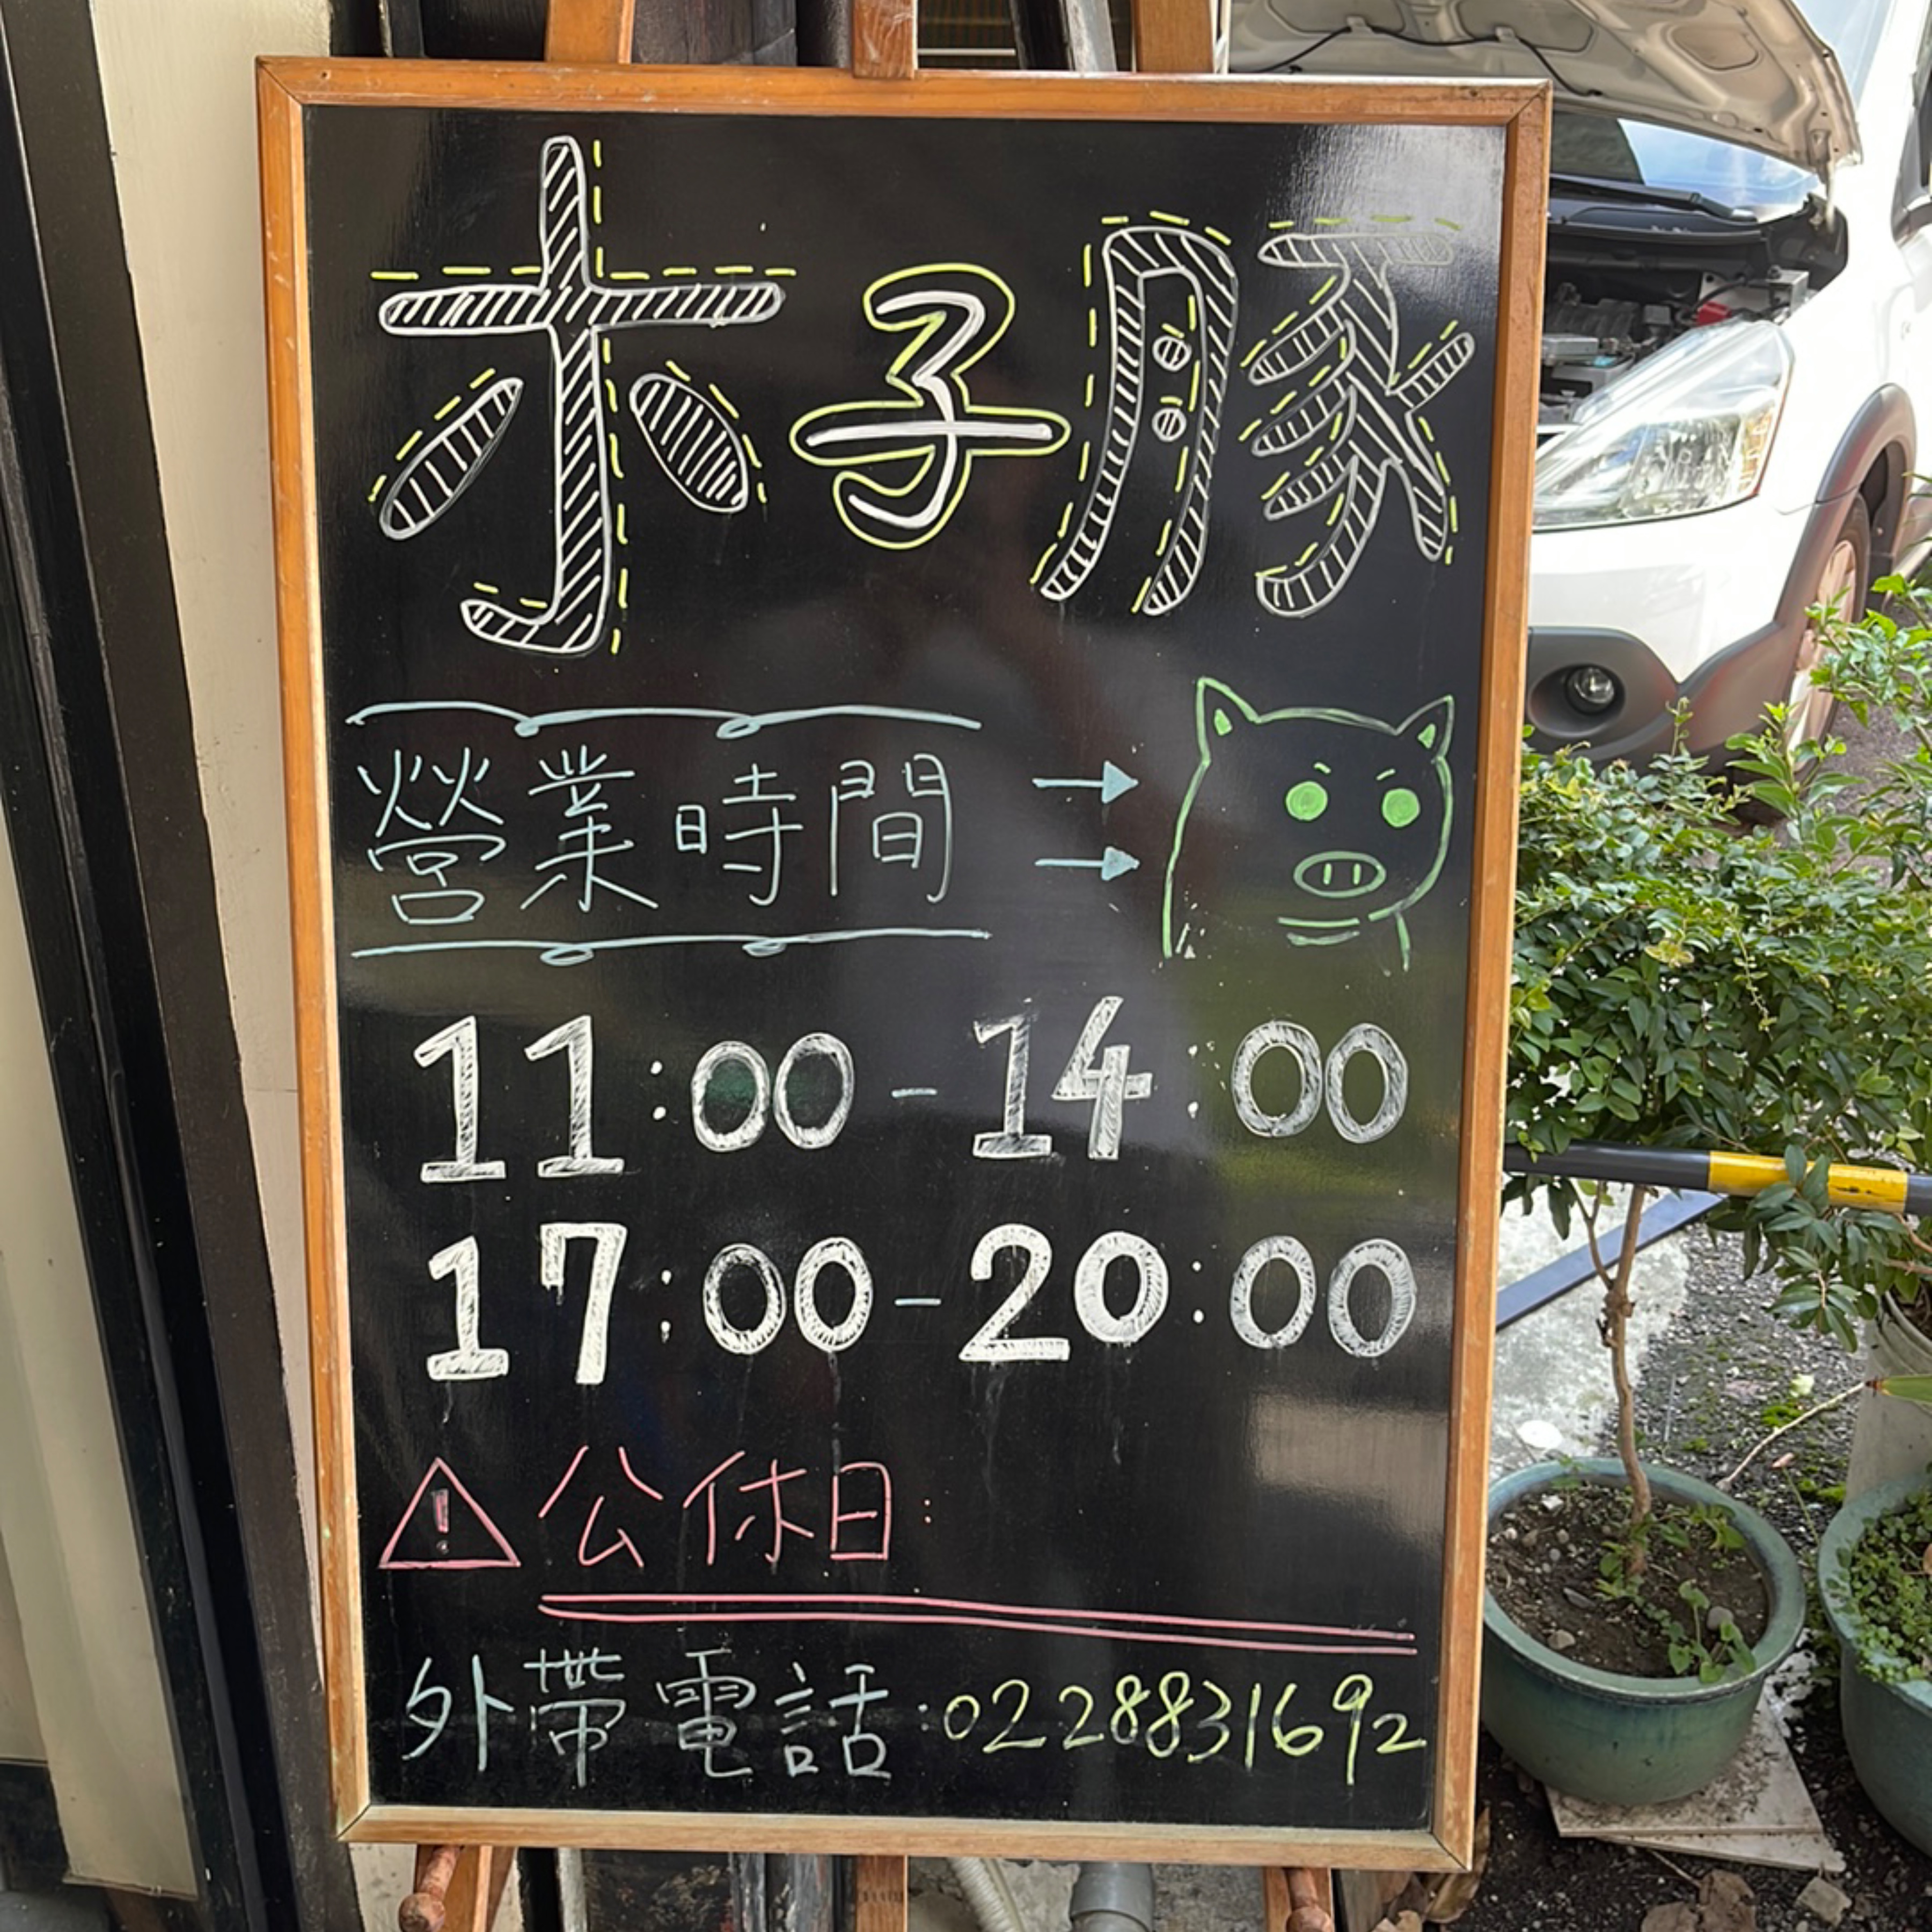 木子豚
營業時間
11:00-14:00
17:00-20:00
公休日:
外帶電話:0228831692